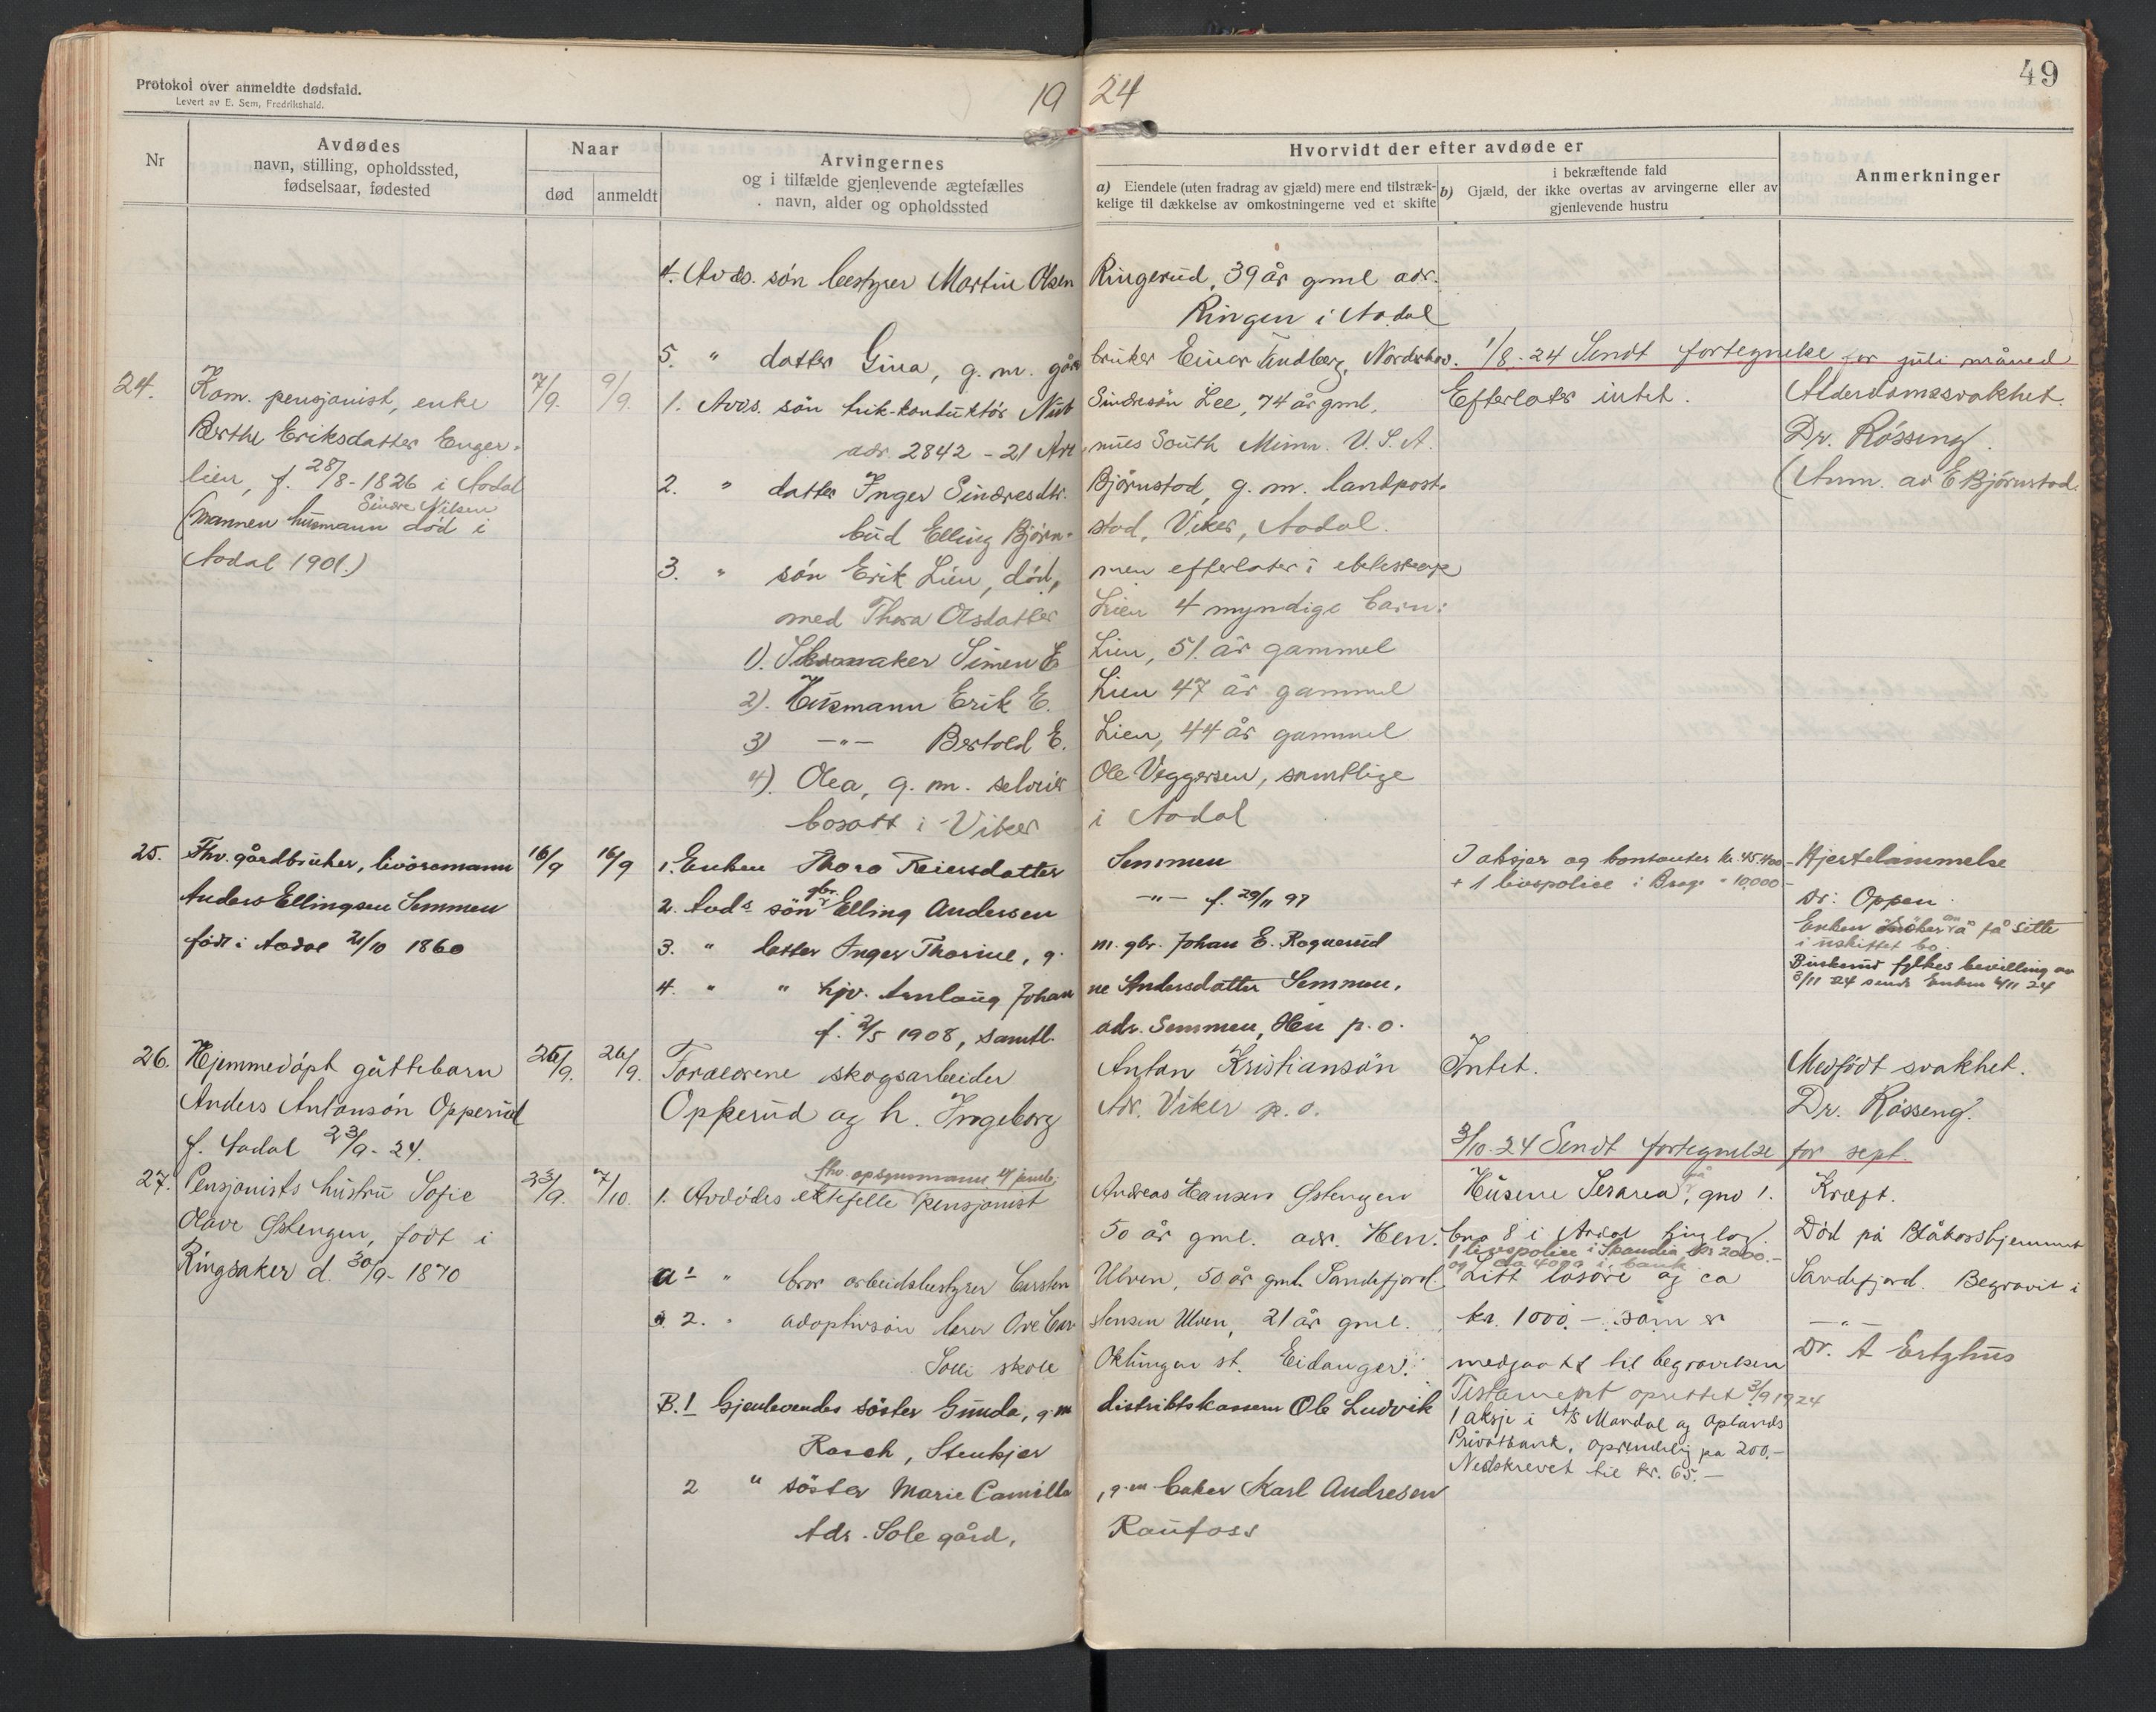 Protokol over anmeldte dødsfald.
Levert av E. Sem, Fredrikshald.
19 24
49
Nr
Avdødes
navn, stilling, opholdssted,
fødselsaar, fødested
Naar
død
anmeldt
Arvingernes
og i tilfælde gjenlevende ægtefælles
navn, alder og opholdssted
Hvorvidt der efter avdøde er
a) Eiendele (uten fradrag av gjæld) mere end tilstræk-
kelige til dækkelse av omkostningerne ved et skifte
i bekræftende fald
b) Gjæld, der ikke overtas av arvingerne eller av
gjenlevende hustru
Anmerkninger
4. Avds. søn bestyrer Martin Olsen Ringerud, 39 år gml adr.
Ringen i Aadal
5. " datter Gina, g. m. gård bruker Einar Tandberg, Norderhov.
1/8-24 Sendt fortegnelse for juli måned
24.
Kom. pensjonist, enke
Berthe Eriksdatter Enger-
lien, f. 28/8-1826 i Aadal
Sindre Nilsen
(mannen husmann død i
Aadal 1901.)
7/9.
9/9.
1. Avds. søn trik-konduktør Nub Sindresøn Lee, 74 år gml,
adr. 2842 - 21 Ave nues South Minn. U. S. A.
2. " datter Inger Sindresdtr. Bjørnstad, g. m. landpost-
bud Elling Bjørn- stad, Viker, Aadal.
3. " søn Erik Lien, død, men efterlater i ekteskap
med Thora Olsdatter Lien 4 myndige barn:
1). Skomaker Simen E. Lien, 51 år gammel
2). Husmann Erik E. Lien 47 år gammel
3) -"- Bertold E. Lien, 44 år gammel
4). Olea, g. m. selveier Ole Veggersen, samtlige
bosatt i Viker i Aadal
Efterlater intet.
Alderdomssvakhet.
Dr. Røsseng.
(Anm. av E Bjørnstad.
25.
Fhv. gårdbruker, livøresmann
Anders Ellingsen Semmen
født i Aadal 21/10 1860
16/9
16/9
1. Enken Thora Reiersdatter Semmen
2. Avds søn gbr. Elling Andersen -"- f. 29/11 97
3. " datter Inger Thorine, g. m. gbr. Johan E. Rognerud
4. " " hjv. Anlaug Johan ne Andersdatter Semmen,
f. 2/5 1908, samtl. adr. Semmen, Hen p. o.
I aksjer og kontanter kr. 45.400-
+ 1 livspolice i Brage " 10,000-
Hjertelammelse
Dr: Oppen
Enken om å få sitte
i uskiftet bo.
Buskerud fylkes bevilling av
3/11 24 sendt Enken 4/11 24
26.
Hjemmedøpt guttebarn
Anders Antonsøn Opperud
f. Aadal 23/9-24.
25/9.
26/9.
Foreldrene skogsarbeider Anton Kristiansøn
Opperud og h. Ingeborg Adr. Viker p. o.
Intet.
Medfødt svakhet.
Dr. Røsseng.
3/10-24 Sendt fortegnelse for sept.
27.
Pensjonists hustru Sofie
Olave Østengen, født i
Ringsaker d. 30/9-1870
23/9.
7/10.
fhv. opsynsmann
1. Avdødes ektefelle pensjonist Andreas Hansen Østengen
50 år gml. adr. Hen.
a1 " bror arbeidsbestyrer Carsten Ulven, 50 år gml. Sandefjord.
a 2. " adoptivsøn lærer Ove Car stensen Ulven, 21 år gml.
Solli skole Oklungen st. Eidanger.
B.1 Gjenlevendes søster Gunda, g.m distriktskasserer Ole Ludvik
Rasch, Stenkjer
2 " søster Marie Camilla, g.m baker Karl Andresen
Adr. Sole gård, Raufoss
Husene gno 1.
bno 8 i Aadal tinglag.
1 livspolice i Skandia, kr 2000.-
og ca 4000 i bank
Litt løsøre og ca
kr. 1000.- som er
medgaatt til begravelsen
Testament oprettet 3/9 1924
1 aksje i A/S Mandal og Oplands
Privatbank, oprindelig pa 200.-
Nedskrevet til kr. 65.-
Kræft.
Død på Blåkorshjemmet
Sandefjord. Begravet i
-"-
Dr. A